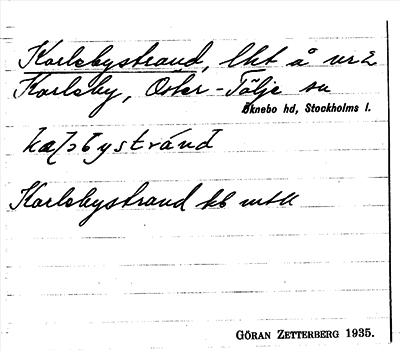 Karlsbystrand, lht å nr 2
Karlsby, Öster-Tälje sn
Öknebo hd, Stockholms l.
Karlsbystrand
GÖRAN ZETTERBERG 1935.